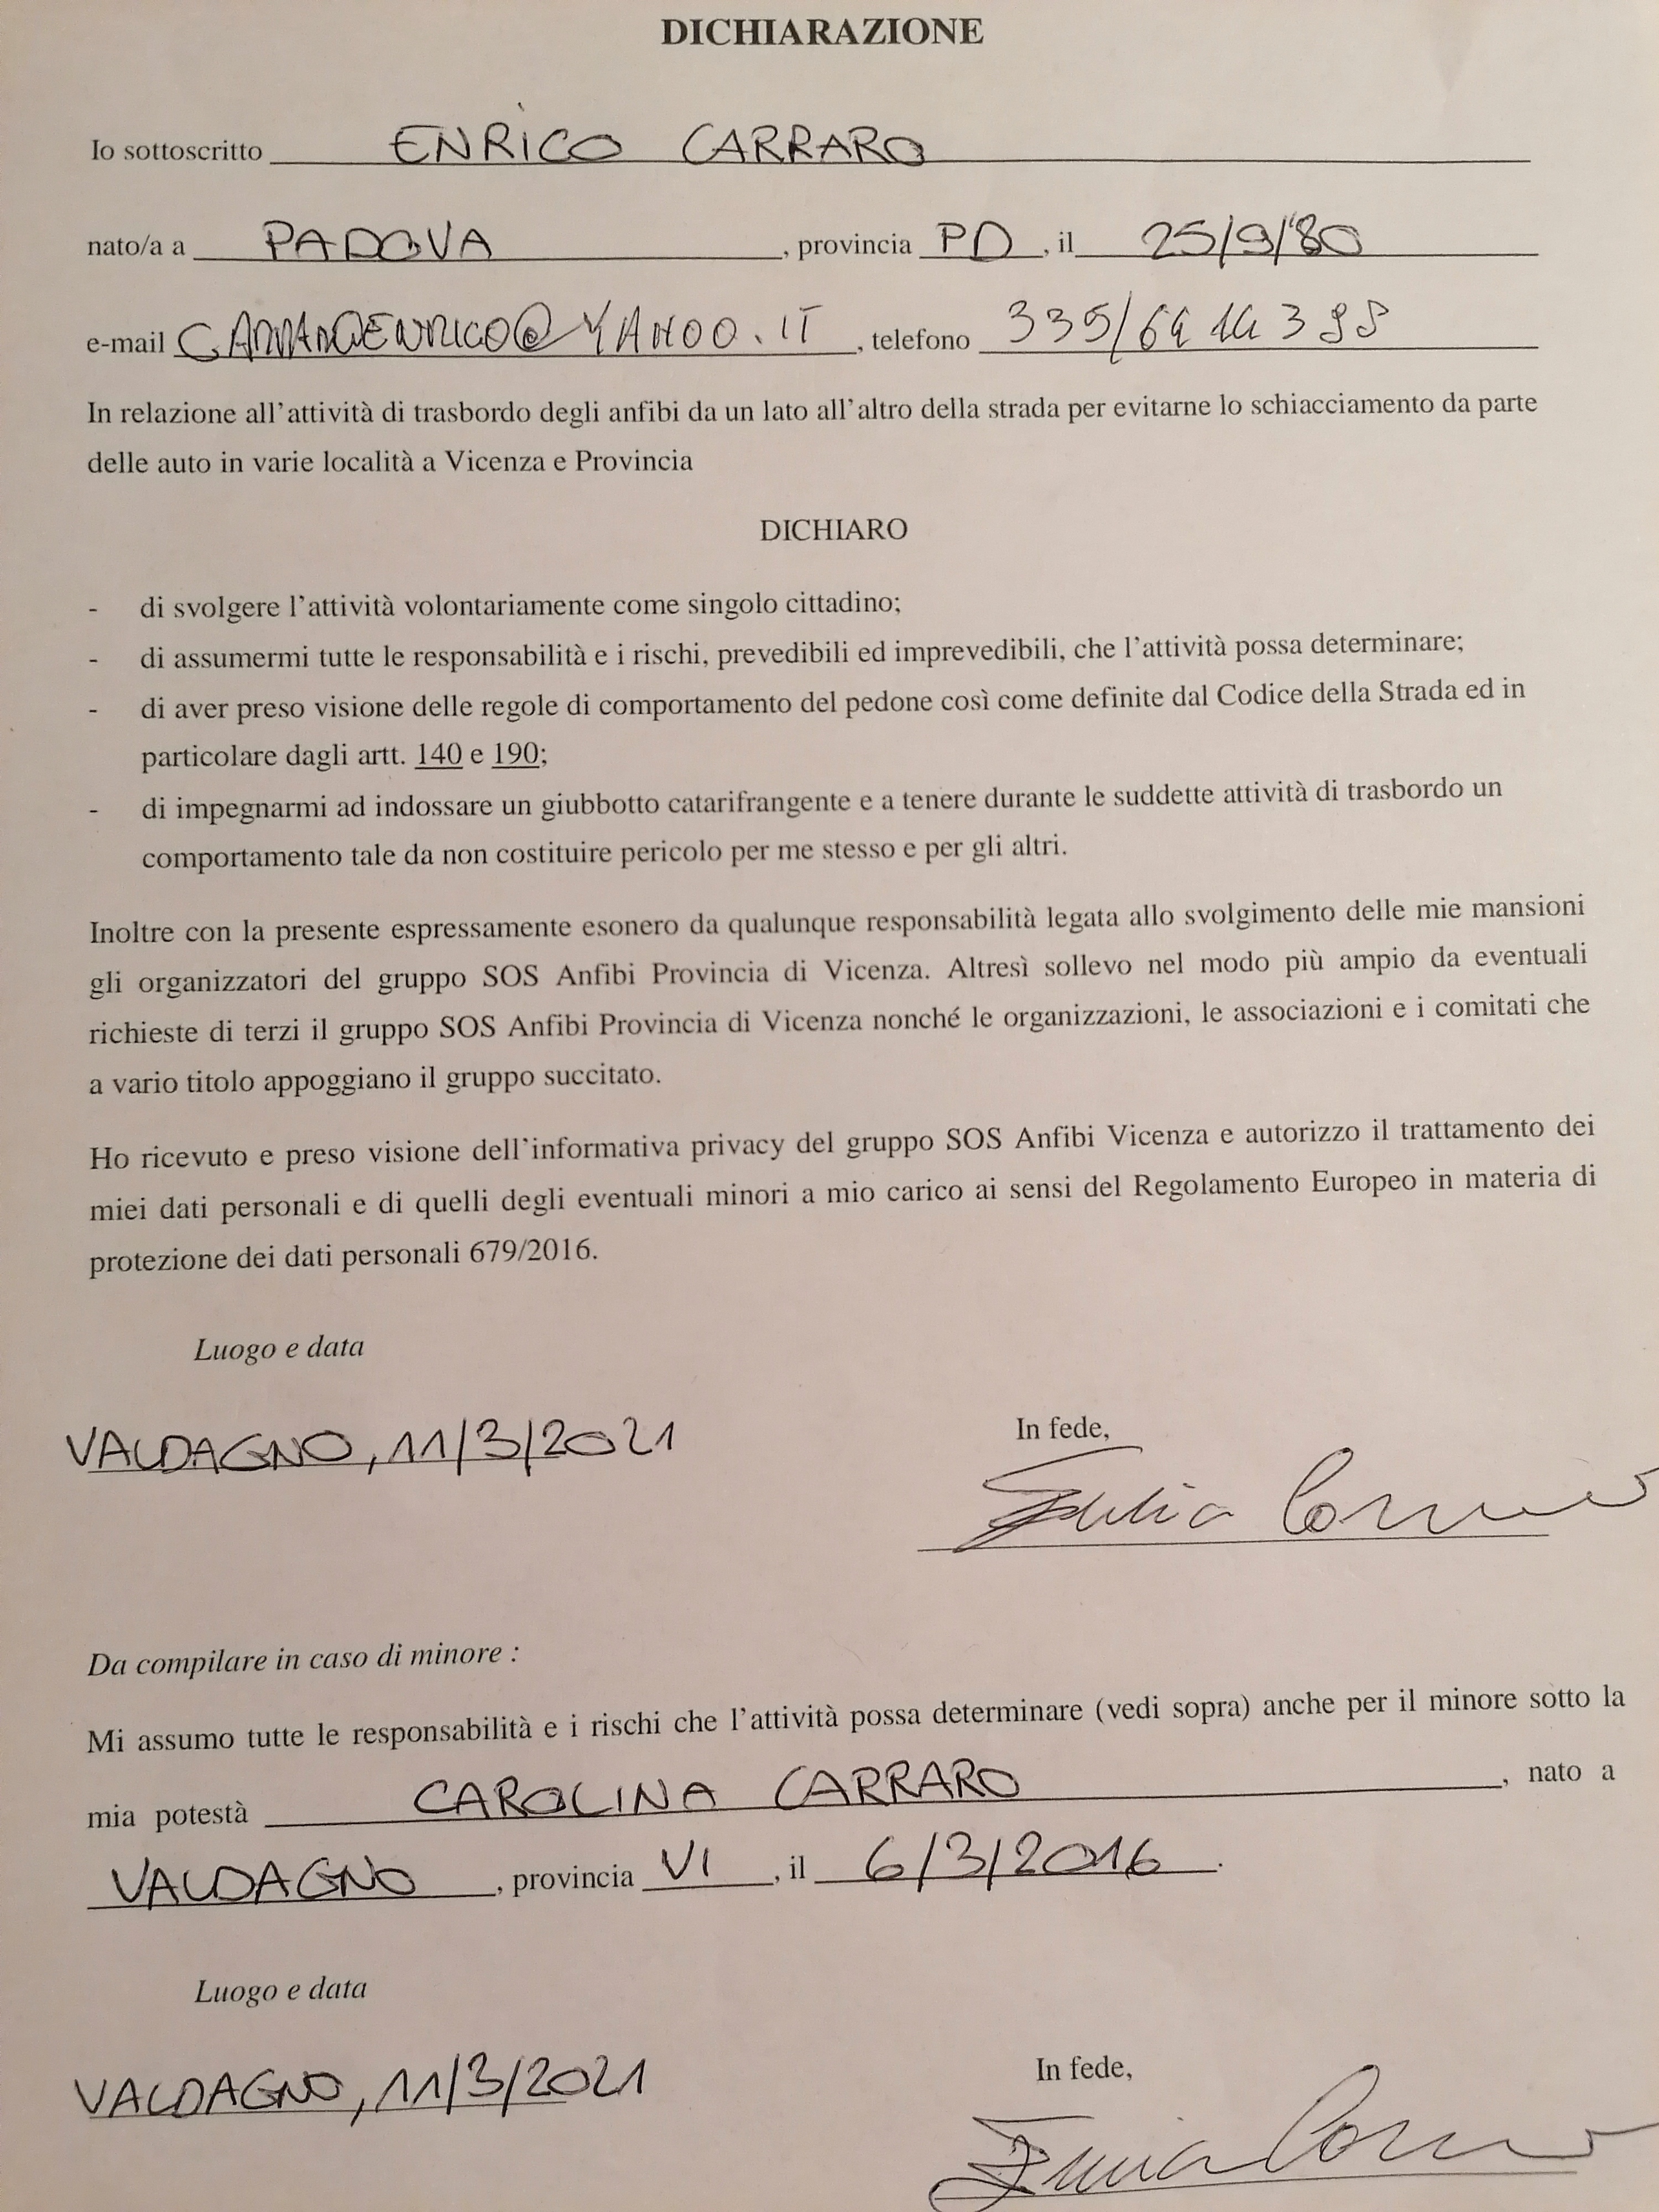 DICHIARAZIONE
Io sottoscritto ENRICO CARRARO
nato/a a PADOVA, provincia PD, il 25/9/'80
e-mail CARRAROENRICO@YAHOO.IT, telefono 335/
In relazione all'attività di trasbordo degli anfibi da un lato all'altro della strada per evitarne lo schiacciamento da parte
delle auto in varie località a Vicenza e Provincia
DICHIARO
- di svolgere l'attività volontariamente come singolo cittadino;
- di assumermi tutte le responsabilità e i rischi, prevedibili ed imprevedibili, che l'attività possa determinare;
- di aver preso visione delle regole di comportamento del pedone così come definite dal Codice della Strada ed in
particolare dagli artt. 140 e 190;
- di impegnarmi ad indossare un giubbotto catarifrangente e a tenere durante le suddette attività di trasbordo un
comportamento tale da non costituire pericolo per me stesso e per gli altri.
Inoltre con la presente espressamente esonero da qualunque responsabilità legata allo svolgimento delle mie mansioni
gli organizzatori del gruppo SOS Anfibi Provincia di Vicenza. Altresì sollevo nel modo più ampio da eventuali
richieste di terzi il gruppo SOS Anfibi Provincia di Vicenza nonché le organizzazioni, le associazioni e i comitati che
a vario titolo appoggiano il gruppo succitato.
Ho ricevuto e preso visione dell'informativa privacy del gruppo SOS Anfibi Vicenza e autorizzo il trattamento dei
miei dati personali e di quelli degli eventuali minori a mio carico ai sensi del Regolamento Europeo in materia di
protezione dei dati personali 679/2016.
Luogo e data
In fede,
VALDAGNO, 11/3/2021
Da compilare in caso di minore :
Mi assumo tutte le responsabilità e i rischi che l'attività possa determinare (vedi sopra) anche per il minore sotto la
mia potestà CAROLINA CARRARO, nato a
VALDAGNO, provincia VI, il 6/3/2016.
Luogo e data
In fede,
VALDAGNO, 11/3/2021